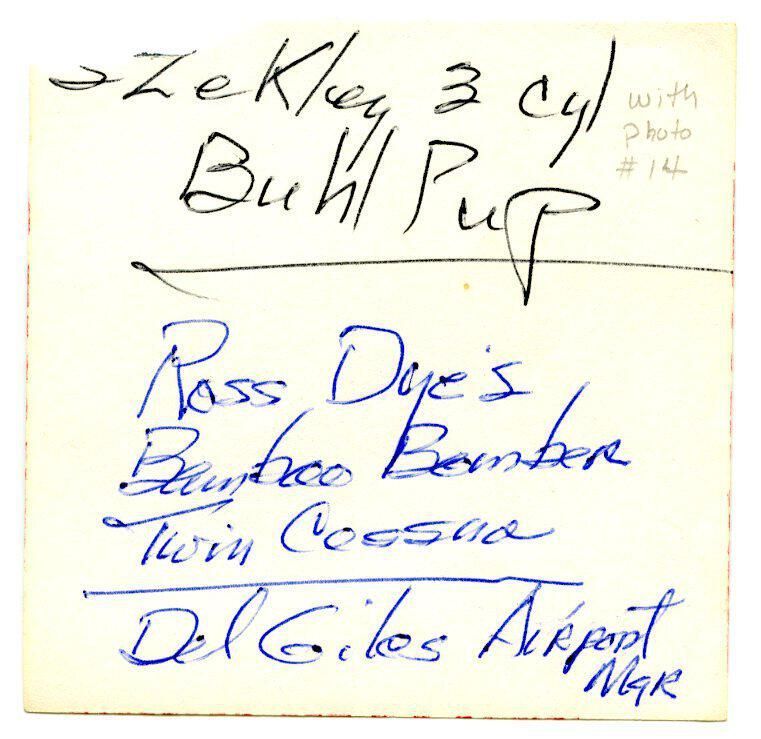 Szekley 3 cyl
Buhl Pup
with
photo
#14
Ross Dye's
Bamboo Bomber
Twin Cessna
Del Giles Airport
Mgr